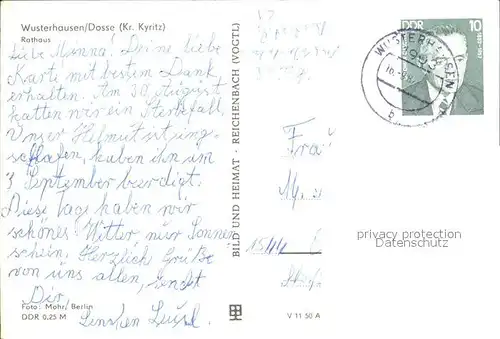 Wusterhausen/Dosse (Kr. Kyritz)
Rathaus
Liebe Manna. Deine liebe
Karte mit bestem Dank
erhalten. Am 30. August
hatten wir ein Sterbefall,
Unser Helmut ist
schlafen, haben ihn am
3 September beerdigt.
Diese Tage haben wir
schönes Witter nur Sonnen
schein. Herzlich Grüße
von uns allen, sendet
Dir
Foto: Mohr, Berlin
DDR 0,25 M
BILD UND HEIMAT · REICHENBACH (VOGTL)
V 11 50 A
DDR 10
WUSTERHAUSEN
b
Frau
M.
1544
privacy protection
Datenschutz